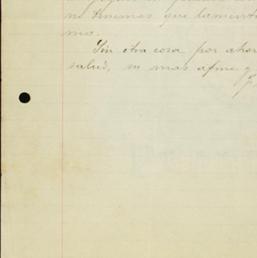 ni tenemos que lamenta
mo.
Sin otra cosa por ahor
salud, su mas afmo y